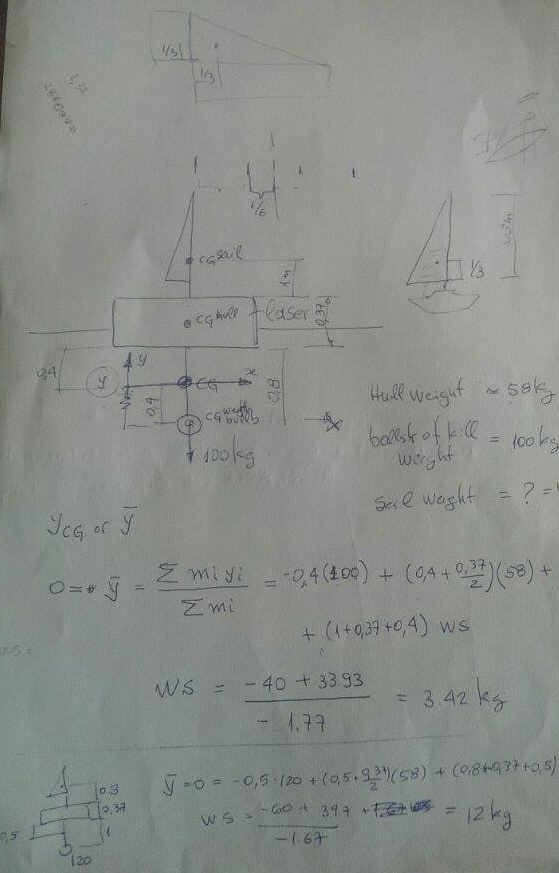 1/3
1/3
1/6
CG sail
1m
1/3
CG hull
laser
0,37
0,4
y
x
CG
0,4
0,8
CG
100 kg
Hull weight ≈ 58 kg
ballst of kill weight = 100 kg
Sail waght = ? =
YCG or ȳ
0 = ȳ = Σ mi yi / Σ mi = -0,4(100) + (0,4 + 0,37/2)(58) +
+ (1+0,37+0,4) WS
WS = -40 + 33.93 / -1.77 = 3.42 kg
0.3
0,37
0,5
1
120
ȳ = 0 = -0,5·120 + (0,5+0,37/2)(58) + (0,8+0,37+0,5)
WS = -60 + 39.7 / -1.67 = 12 kg